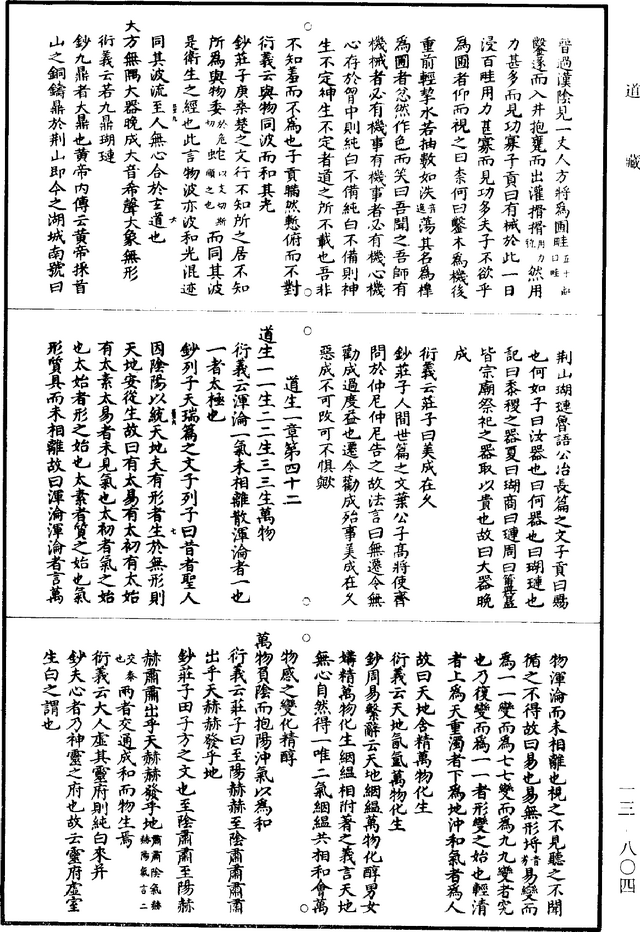 道藏
晉過漢陰見一丈人方將為圃畦五十畝曰畦
鑿遂而入井抱甕而出灌搰搰用力然用
力甚多而見功寡子貢曰有械於此一日
浸百畦用力甚寡而見功多夫子不欲乎
為圃者仰而視之曰柰何曰鑿木為機後
重前輕挈水若抽數如泆湯其名為槔
為圃者忿然作色而笑曰吾聞之吾師有
機械者必有機事有機事者必有機心機
心存於胷中則純白不備純白不備則神
生不定神生不定者道之所不載也吾非
不知羞而不為也子貢瞞然慙俯而不對
衍義云與物同波而和其光
鈔莊子庚桑楚之文行不知所之居不知
所為與物委蛇而同其波
是衛生之經也此言物波亦波和光混迹
同其波流至人無心合於玄道也
大方無隅大器晚成大音希聲大象無形
衍義云若九鼎瑚璉
鈔九鼎者大鼎也黃帝內傳云黃帝採首
山之銅鑄鼎於荆山即今之湖城南號曰
荆山瑚璉魯語公冶長篇之文子貢曰賜
也何如子曰汝器也曰何器也曰瑚璉也
記曰黍稷之器夏曰瑚商曰璉周曰簠簋
皆宗廟祭祀之器取以貴也故曰大器晚
成
衍義云莊子曰美成在久
鈔莊子人間世篇之文葉公子高將使齊
問於仲尼仲尼告之故法言曰無遷令無
勸成過度益也遷令勸成殆事美成在久
惡成不可改可不懼歟
道生一章第四十二
道生一一生二二生三三生萬物
衍義云渾淪一氣未相離散渾淪者一也
一者太極也
鈔列子天瑞篇之文子列子曰昔者聖人
因陰陽以統天地夫有形者生於無形則
天地安從生故曰有太易有太初有太始
有太素太易者未見氣也太初者氣之始
也太始者形之始也太素者質之始也氣
形質具而未相離故曰渾淪渾淪者言萬
物渾淪而未相離也視之不見聽之不聞
循之不得故曰易也易無形埒易變而
為一一變而為七七變而為九九變者究
也乃復變而為一一者形變之始也輕清
者上為天重濁者下為地沖和氣者為人
故曰天地含精萬物化生
衍義云天地氤氳萬物化生
鈔周易繫辭云天地絪緼萬物化醇男女
媾精萬物化生絪緼相附著之義言天地
無心自然得一唯二氣絪緼共相和會萬
物感之變化精醇
萬物負陰而抱陽沖氣以為和
衍義云莊子曰至陽赫赫至陰肅肅肅肅
出乎天赫赫發乎地
鈔莊子田子方之文也至陰肅肅至陽赫
赫肅肅出乎天赫赫發乎地肅肅陰氣赫赫陽氣言二
交泰也兩者交通成和而物生焉
衍義云大人虛其靈府則純白來并
鈔夫心者乃神靈之府也故云靈府虛室
生白之謂也
一三·八〇四